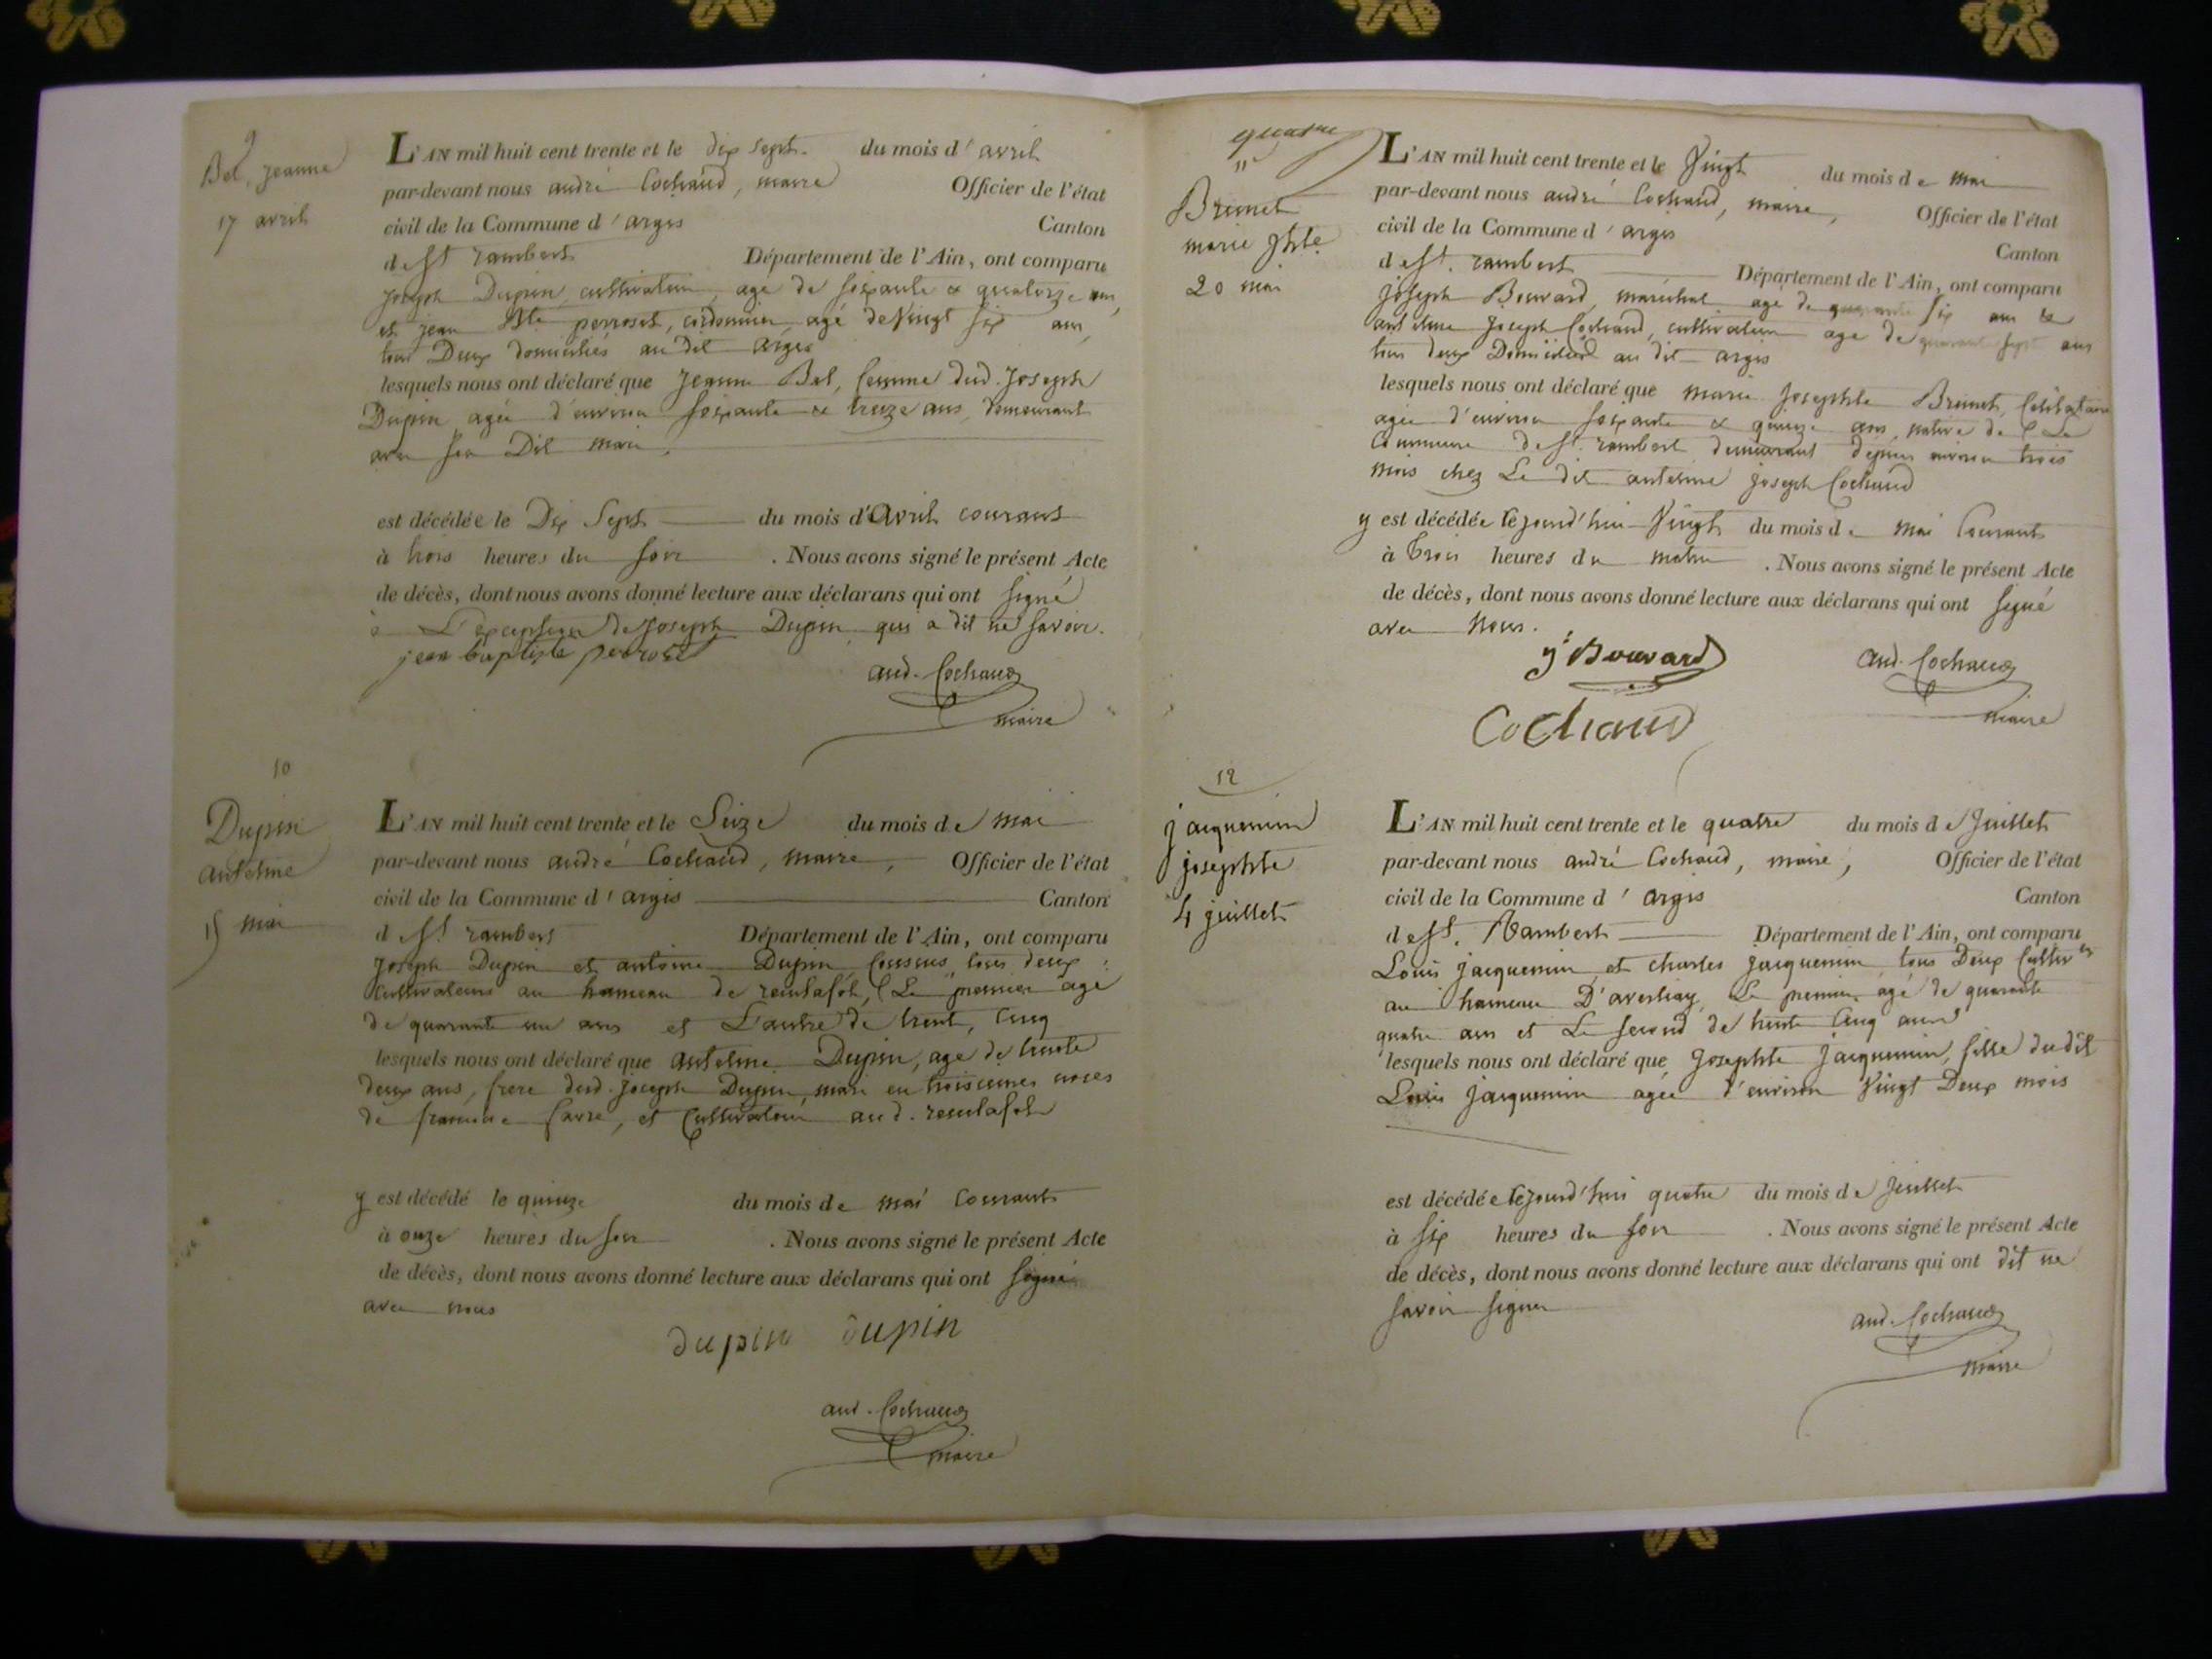 9
Bel, jeanne
17 avril
L'AN mil huit cent trente et le dix sept du mois d'avril
par-devant nous andré Cochaud, maire Officier de l'état
civil de la Commune d'argis Canton
de St rambert Département de l'Ain, ont comparu
joseph Dupin, cultivateur, agé de soixante & quatorze ans,
et jean Bte perroset, cordonnier, agé de vingt six ans,
tous Deux domiciliés au dit argis
lesquels nous ont déclaré que jeanne Bel, femme dud. joseph
Dupin agée d'environ soixante & treize ans, demeurant
avec son Dit mari,
est décédée le Dix Sept du mois d'avril courant
à trois heures du soir . Nous avons signé le présent Acte
de décès, dont nous avons donné lecture aux déclarans qui ont signé
à L'exception de joseph Dupin qui a dit ne savoir.
jean baptiste perroset
and. Cochaud
maire
10
Dupin
antelme
15 mai
L'AN mil huit cent trente et le Seize du mois de mai
par-devant nous andré Cochaud, maire, Officier de l'état
civil de la Commune d'argis Canton
de St rambert Département de l'Ain, ont comparu
joseph Dupin et antoine Dupin, cousins, tous deux
cultivateurs au hameau de reculafol, Le premier agé
de quarante un ans et L'autre de trente, cinq
lesquels nous ont déclaré que antelme Dupin, agé de trente
deux ans, frere dud. joseph Dupin, mari en troisiemes noces
de francoise favre, et Cultivateur aud. reculafol
y est décédé le quinze du mois de mai Courant
à onze heures du soir . Nous avons signé le présent Acte
de décès, dont nous avons donné lecture aux déclarans qui ont signé
avec nous
dupin dupin
and. Cochaud
maire
quatre
11
Brunet
marie jhte
20 mai
L'AN mil huit cent trente et le Vingt du mois de mai
par-devant nous andré Cochaud, maire, Officier de l'état
civil de la Commune d'argis Canton
de St. rambert Département de l'Ain, ont comparu
joseph Bouvard, maréchal agé de quarante six ans &
antelme joseph Cochaud, cultivateur agé de quarante sept ans
tous deux Domiciliés au dit argis
lesquels nous ont déclaré que marie josephte Brunet, Célibataire
agée d'environ soixante & quinze ans, native de La
Commune de St. rambert demeurant depuis environ trois
mois chez Le dit antelme joseph Cochaud
y est décédée cejourd'hui Vingt du mois de mai Courant
à Trois heures du matin . Nous avons signé le présent Acte
de décès, dont nous avons donné lecture aux déclarans qui ont signé
avec nous.
j Bouvard
and. Cochaud
maire
Cochaud
12
jacquemin
josephte
4 juillet
L'AN mil huit cent trente et le quatre du mois de Juillet
par-devant nous andré Cochaud, maire, Officier de l'état
civil de la Commune d'argis Canton
de St. Rambert Département de l'Ain, ont comparu
Louis jacquemin et charles jacquemin tous Deux Cultivrs
au hameau D'averliay Le premier agé de quarante
quatre ans et Le second de trente Cinq ans
lesquels nous ont déclaré que Josephte jacquemin, fille du dit
Louis jacquemin agée d'environ Vingt Deux mois
est décédée cejourd'hui quatre du mois de Juillet
à six heures du soir . Nous avons signé le présent Acte
de décès, dont nous avons donné lecture aux déclarans qui ont dit ne
savoir signer
and. Cochaud
maire